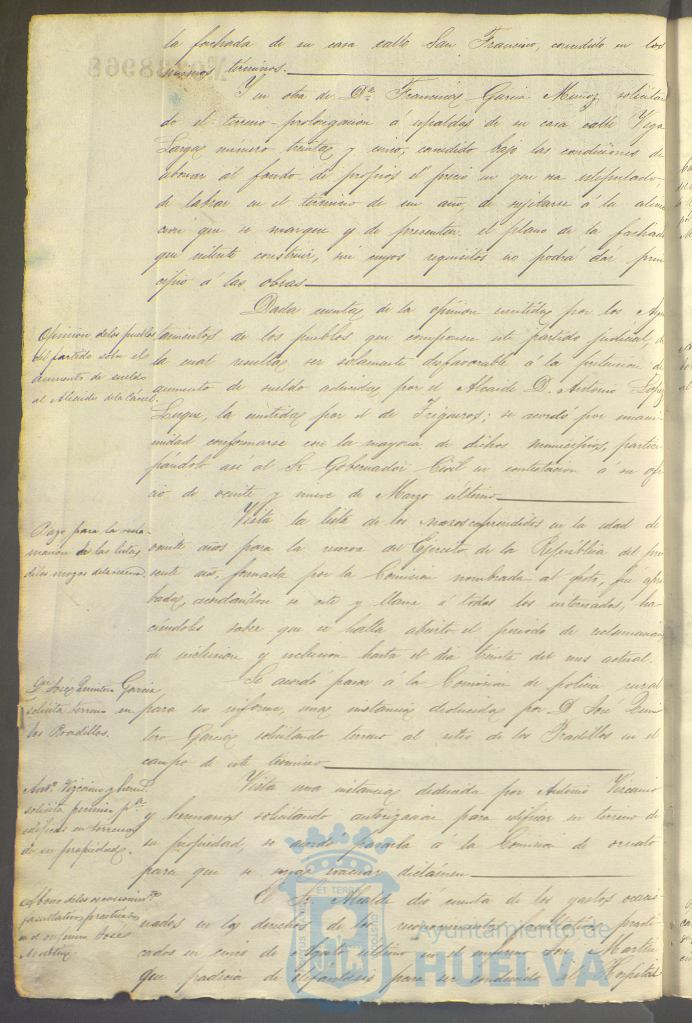 la fachada de su casa calle San Francisco, concedido en los
mismos términos.
Y en otra de Dª Francisca Garcia Muñoz, solicitan
do el terreno prolongacion á espaldas de su casa calle Vega
Larga numero treinta y cinco, concedido bajo las condiciones de
abonar al fondo de propios el precio en que sea
de labrar en el término de un año, de sugetarse á la aline
cion que se marque y de presentar el plano de la fachada
que intente construir, sin cuyos requisitos no podrá dár prin
cipio á las obras.
Opinion de los pueblos
del partido sobre el
aumento de sueldo
al Alcaide de la Cárcel.
Dada cuenta de la opinion emitida por los Ayun
tamientos de los pueblos que componen este partido judicial, de
la cual resulta ser solamente desfavorable á la pretension de
aumento de sueldo aducida por el Alcaide D. Antonio Lopez
Luque, la emitida por el de Trigueros; se acordó por unani
midad conformarse con la mayoria de dichos municipios, partici
pándolo asi al Sr. Gobernador Civil en contestacion á su ofi
cio de veinte y nueve de Marzo último
Pago para la recla
macion de las listas
de los mozos de la reserva
Vista la lista de los mozos comprendidos en la edad de
veinte años para la reserva del Ejército de la República del pre
sente año, formada por la Comision nombrada al efecto, fué apro
bada, acordándose se cite y llame á todos los interesados, ha
ciéndoles saber que se halla abierto el periodo de reclamaciones
de inclusion y esclusion hasta el dia treinta del mes actual.
D. José Quintero Garcia
solicita terreno en
los Pradillos.
Se acordó pasar á la Comision de policia rural
para su informe, una instancia deducida por D. José Quin
tero Garcia solicitando terreno al sitio de los Pradillos en el
campo de este término
Antº Vizcaino y herms.
solicita permiso pª
edificar en terreno
de su propiedad.
Vista una instancia deducida por Antonio Vizcaino
y hermanos solicitando autorizacion para edificar en terreno de
su propiedad, se acordó pasarla á la Comision de ornato
para que se sirva evacuar dictámen
Abono de los reconocimtos
facultativos practicados
en el enfermo José
Martin
El Sr. Alcalde dió cuenta de los gastos ocasio
nados en los derechos de los reconocimientos facultativos practi
cados en de último en el enfermo José Martin
que padecia de para ser conducido al Hospital
Ayuntamiento de
HUELVA